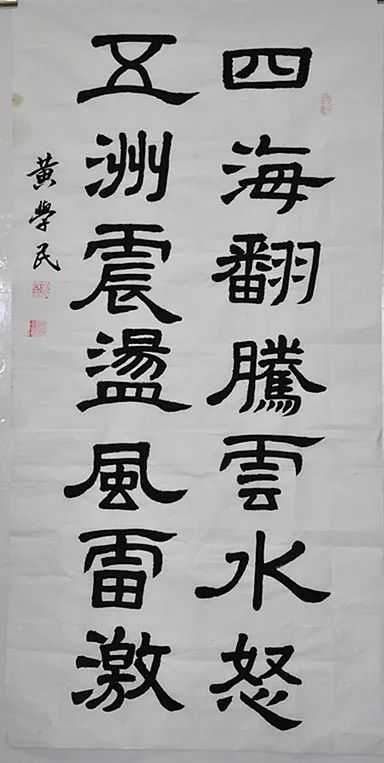 四海翻騰雲水怒
五洲震盪風雷激
黄學民